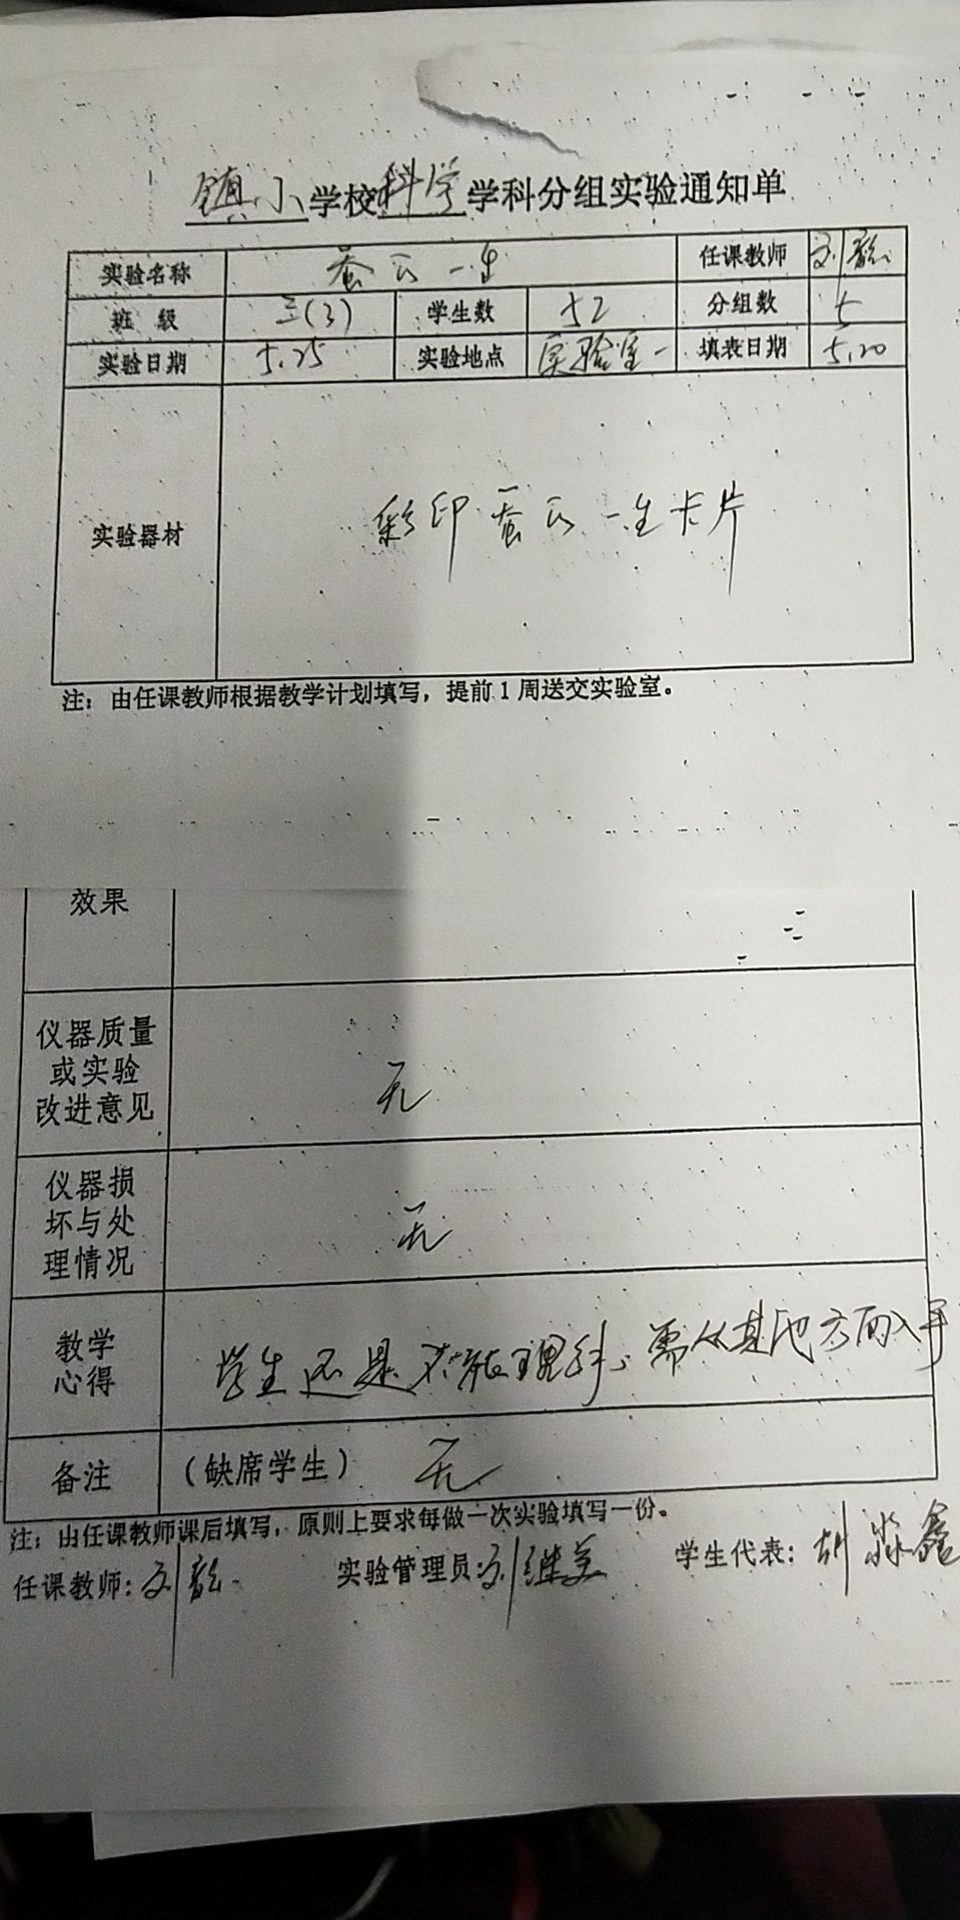 镇小学校科学学科分组实验通知单
实验名称 蚕的一生 任课教师 刘
班 级 三(3) 学生数 52 分组数 5
实验日期 5.25 实验地点 实验室一 填表日期 5.20
实验器材 彩印蚕的一生卡片
注：由任课教师根据教学计划填写，提前1周送交实验室。
效果
仪器质量
或实验
改进意见
无
仪器损
坏与处
理情况
无
教学
心得
学生还是不能理解，需从其他方面入手
备注 （缺席学生） 无
注：由任课教师课后填写，原则上要求每做一次实验填写一份。
任课教师：刘 实验管理员：刘继美 学生代表：胡淼鑫